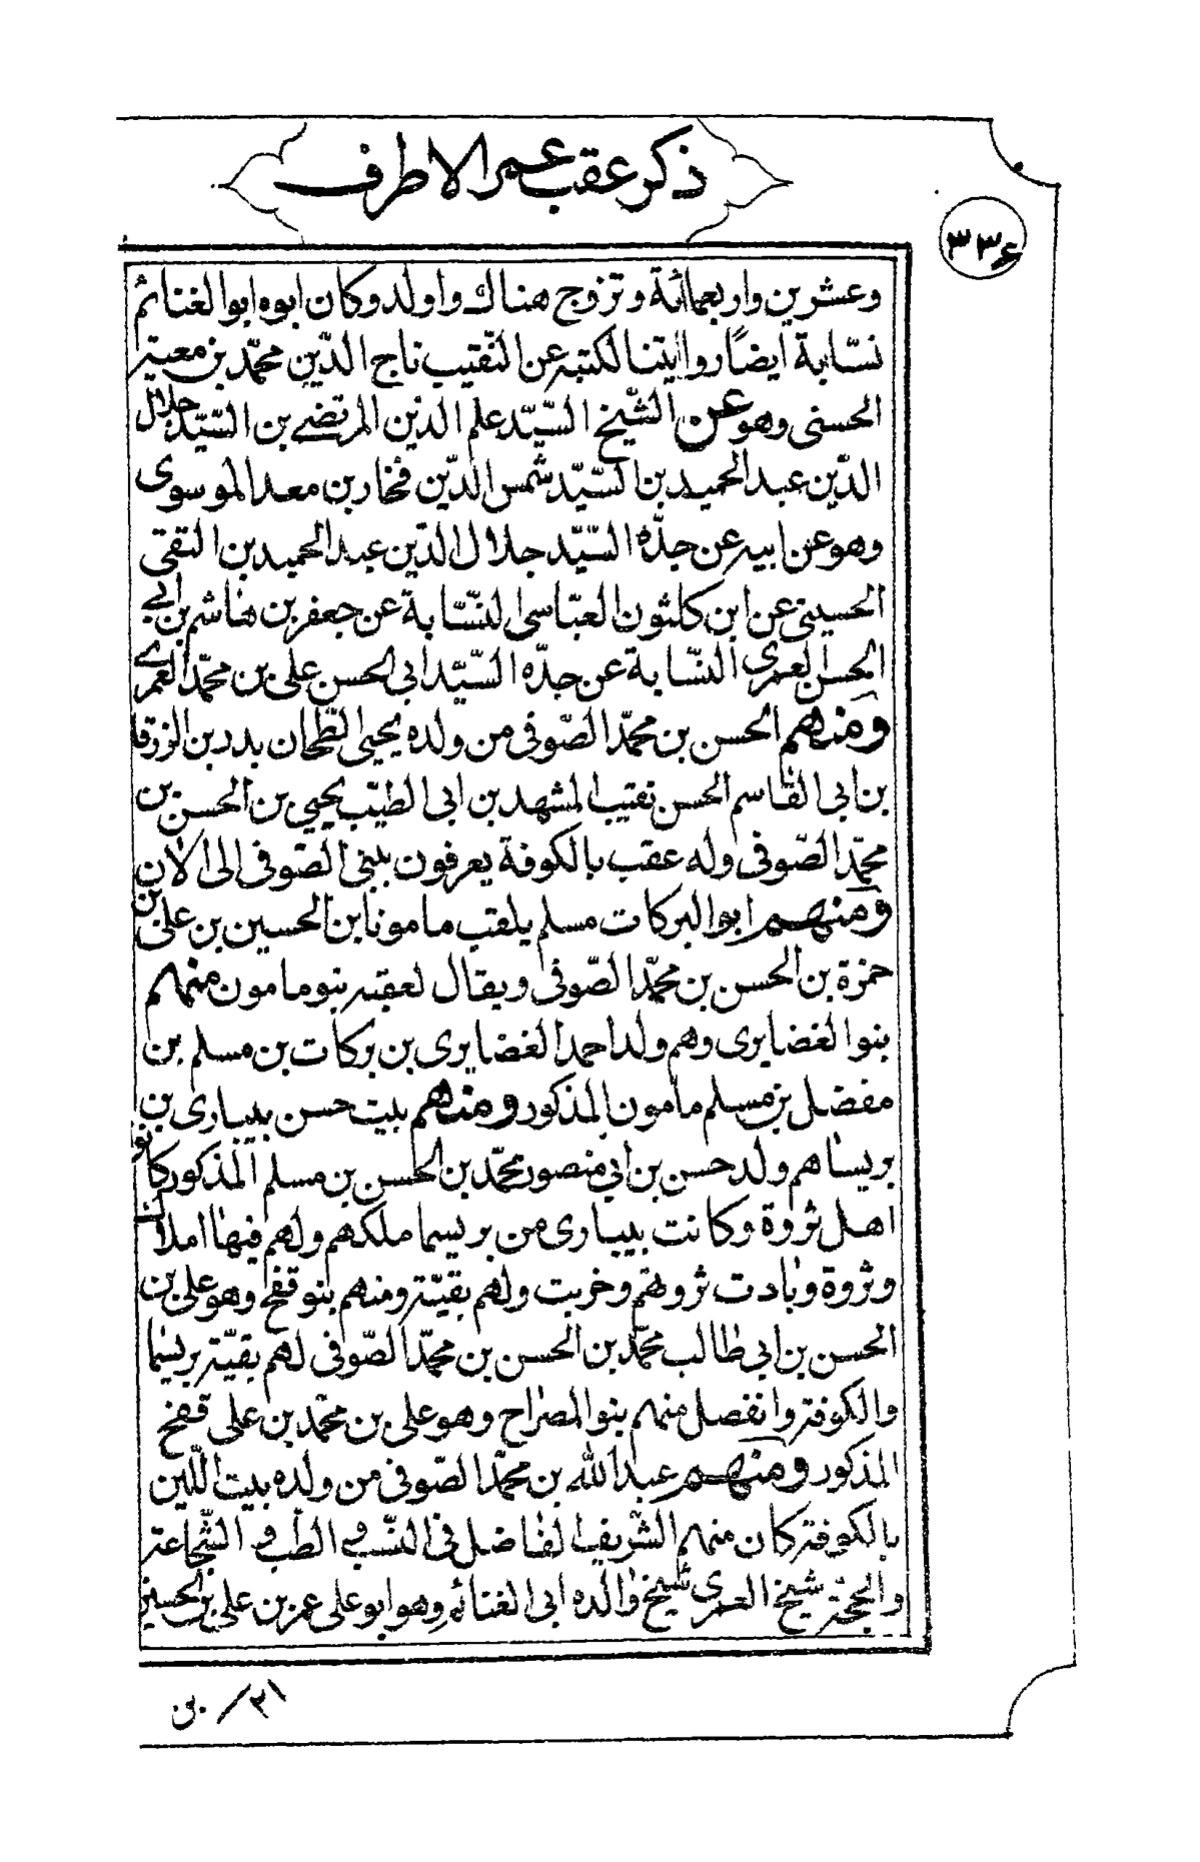 ذكر عقب عمر الاطرف
٣٣٤
وعشرين واربعمائة وتزوج هناك واولد وكان ابوه ابو الغنائم
نسّابة ايضًا روايتنا لكتبه عن النقيب تاج الدّين محمّد بن معية
الحسنى وهو عن الشّيخ السّيّد علم الدين المرتضى بن السّيّد جلال
الدّين عبد الحميد بن السّيّد شمس الدّين فخار بن معد الموسوى
وهو عن ابيه عن جدّه السّيّد جلال الدّين عبد الحميد بن التقى
الحسينى عن ابن كلثون العبّاسى النسّابة عن جعفر بن هاشم بن ابي
الحسن العمرى النسّابة عن جدّه السّيّد ابى الحسن على بن محمّد العمرى
ومنهم الحسن بن محمّد الصّوفى من ولده يحيى الطّحان بدر بن الزرقا
بن ابى القاسم الحسن نقيب المشهد بن ابى الطيّب يحيى بن الحسن بن
محمّد الصّوفى وله عقب بالكوفة يعرفون ببنى الصّوفى الى الآن
ومنهم ابو البركات مسلم يلقب مامونا بن الحسين بن على بن
حمزة بن الحسن بن محمّد الصّوفى ويقال لعقبه بنو مامون منهم
بنوا الغضايرى وهم ولد احمد الغضايرى بن بركات بن مسلم بن
مفضل بن مسلم مامون المذكور ومنهم بيت حسن ببيبارى بن
بريساهم ولد حسن بن ابي منصور محمّد بن الحسن بن مسلم المذكور كانوا
اهل ثروة وكانت بيبارى من بريسما ملكهم ولهم فيها املاك
وثروة وبادت ثروتهم وخربت ولهم بقيّة ومنهم بنو قفخ وهو على بن
الحسن بن ابى طالب محمّد بن الحسن بن محمّد الصّوفى لهم بقيّة بريسما
والكوفة وانفصل منهم بنو المصراح وهو على بن محمّد بن على قفخ
المذكور ومنهم عبد الله بن محمّد الصّوفى من ولده بيت اللّبن
بالكوفة كان منهم الشّريف الفاضل فى النّسب و الطب و الشّجاعة
والحجّة شيخ العمرى شيخ والده ابى الغنائم وهو ابو على عمر بن على بن الحسين
٢١/ بن